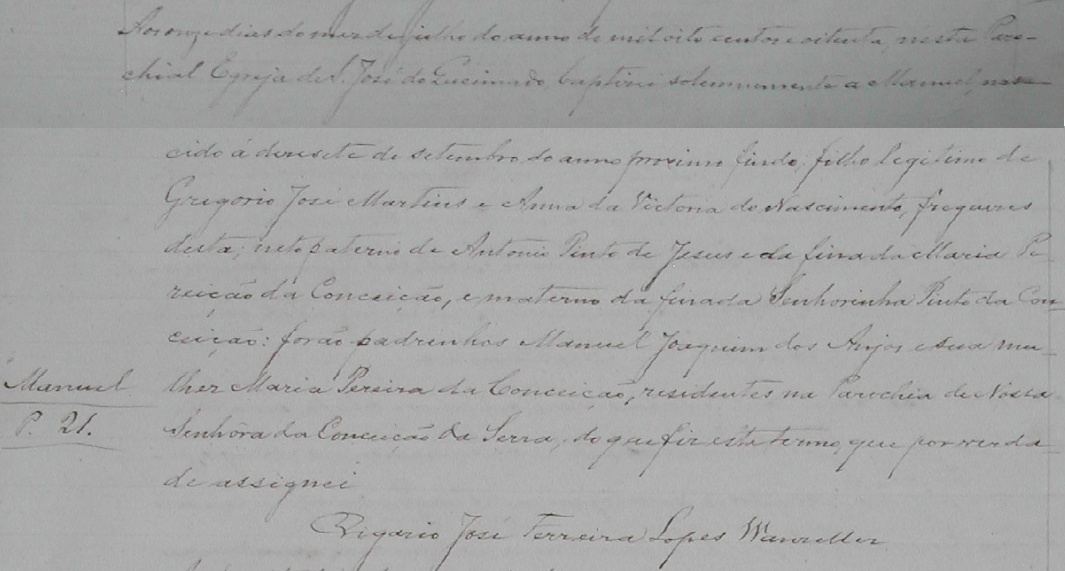 Aos onze dias do mez de julho do anno de mil oito centos e oitenta, nesta Paro-
chial Egreja de S. José do Queimado, baptizei solemnemente a Manuel, nas-
cido á dezesete de setembro do anno proximo findo, filho legitimo de
Gregorio José Martins e Anna da Victoria do Nascimento, freguezes
desta; neto paterno de Antonio Pinto de Jesus e da finada Maria Pe-
reição da Conceição, e materno da finada Senhorinha Pinto da Con-
ceição: forão padrinhos Manuel Joaquim dos Anjos e sua mu-
Manuel
lher Maria Pereira da Conceição, residentes na Parochia de Nossa
P. 21.
Senhora da Conceição da Serra, do que fiz este termo, que por verda-
de assignei
Vigario José Ferreira Lopes Wanzeller